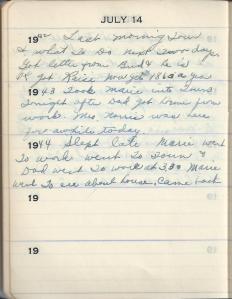 JULY 14
1942 Last morning Town
& what to do next two days
Got letter from Bud & he is
got Raise now get 1860 a year
1943 Took Marie into Town
Tonight after Dad got home from
work. Mrs. Norris was here
for awhile today.
1944 Slept late Marie went
To work went To Town &
Dad went To work at 3,30 Marie
went To see about house, came back
19
19